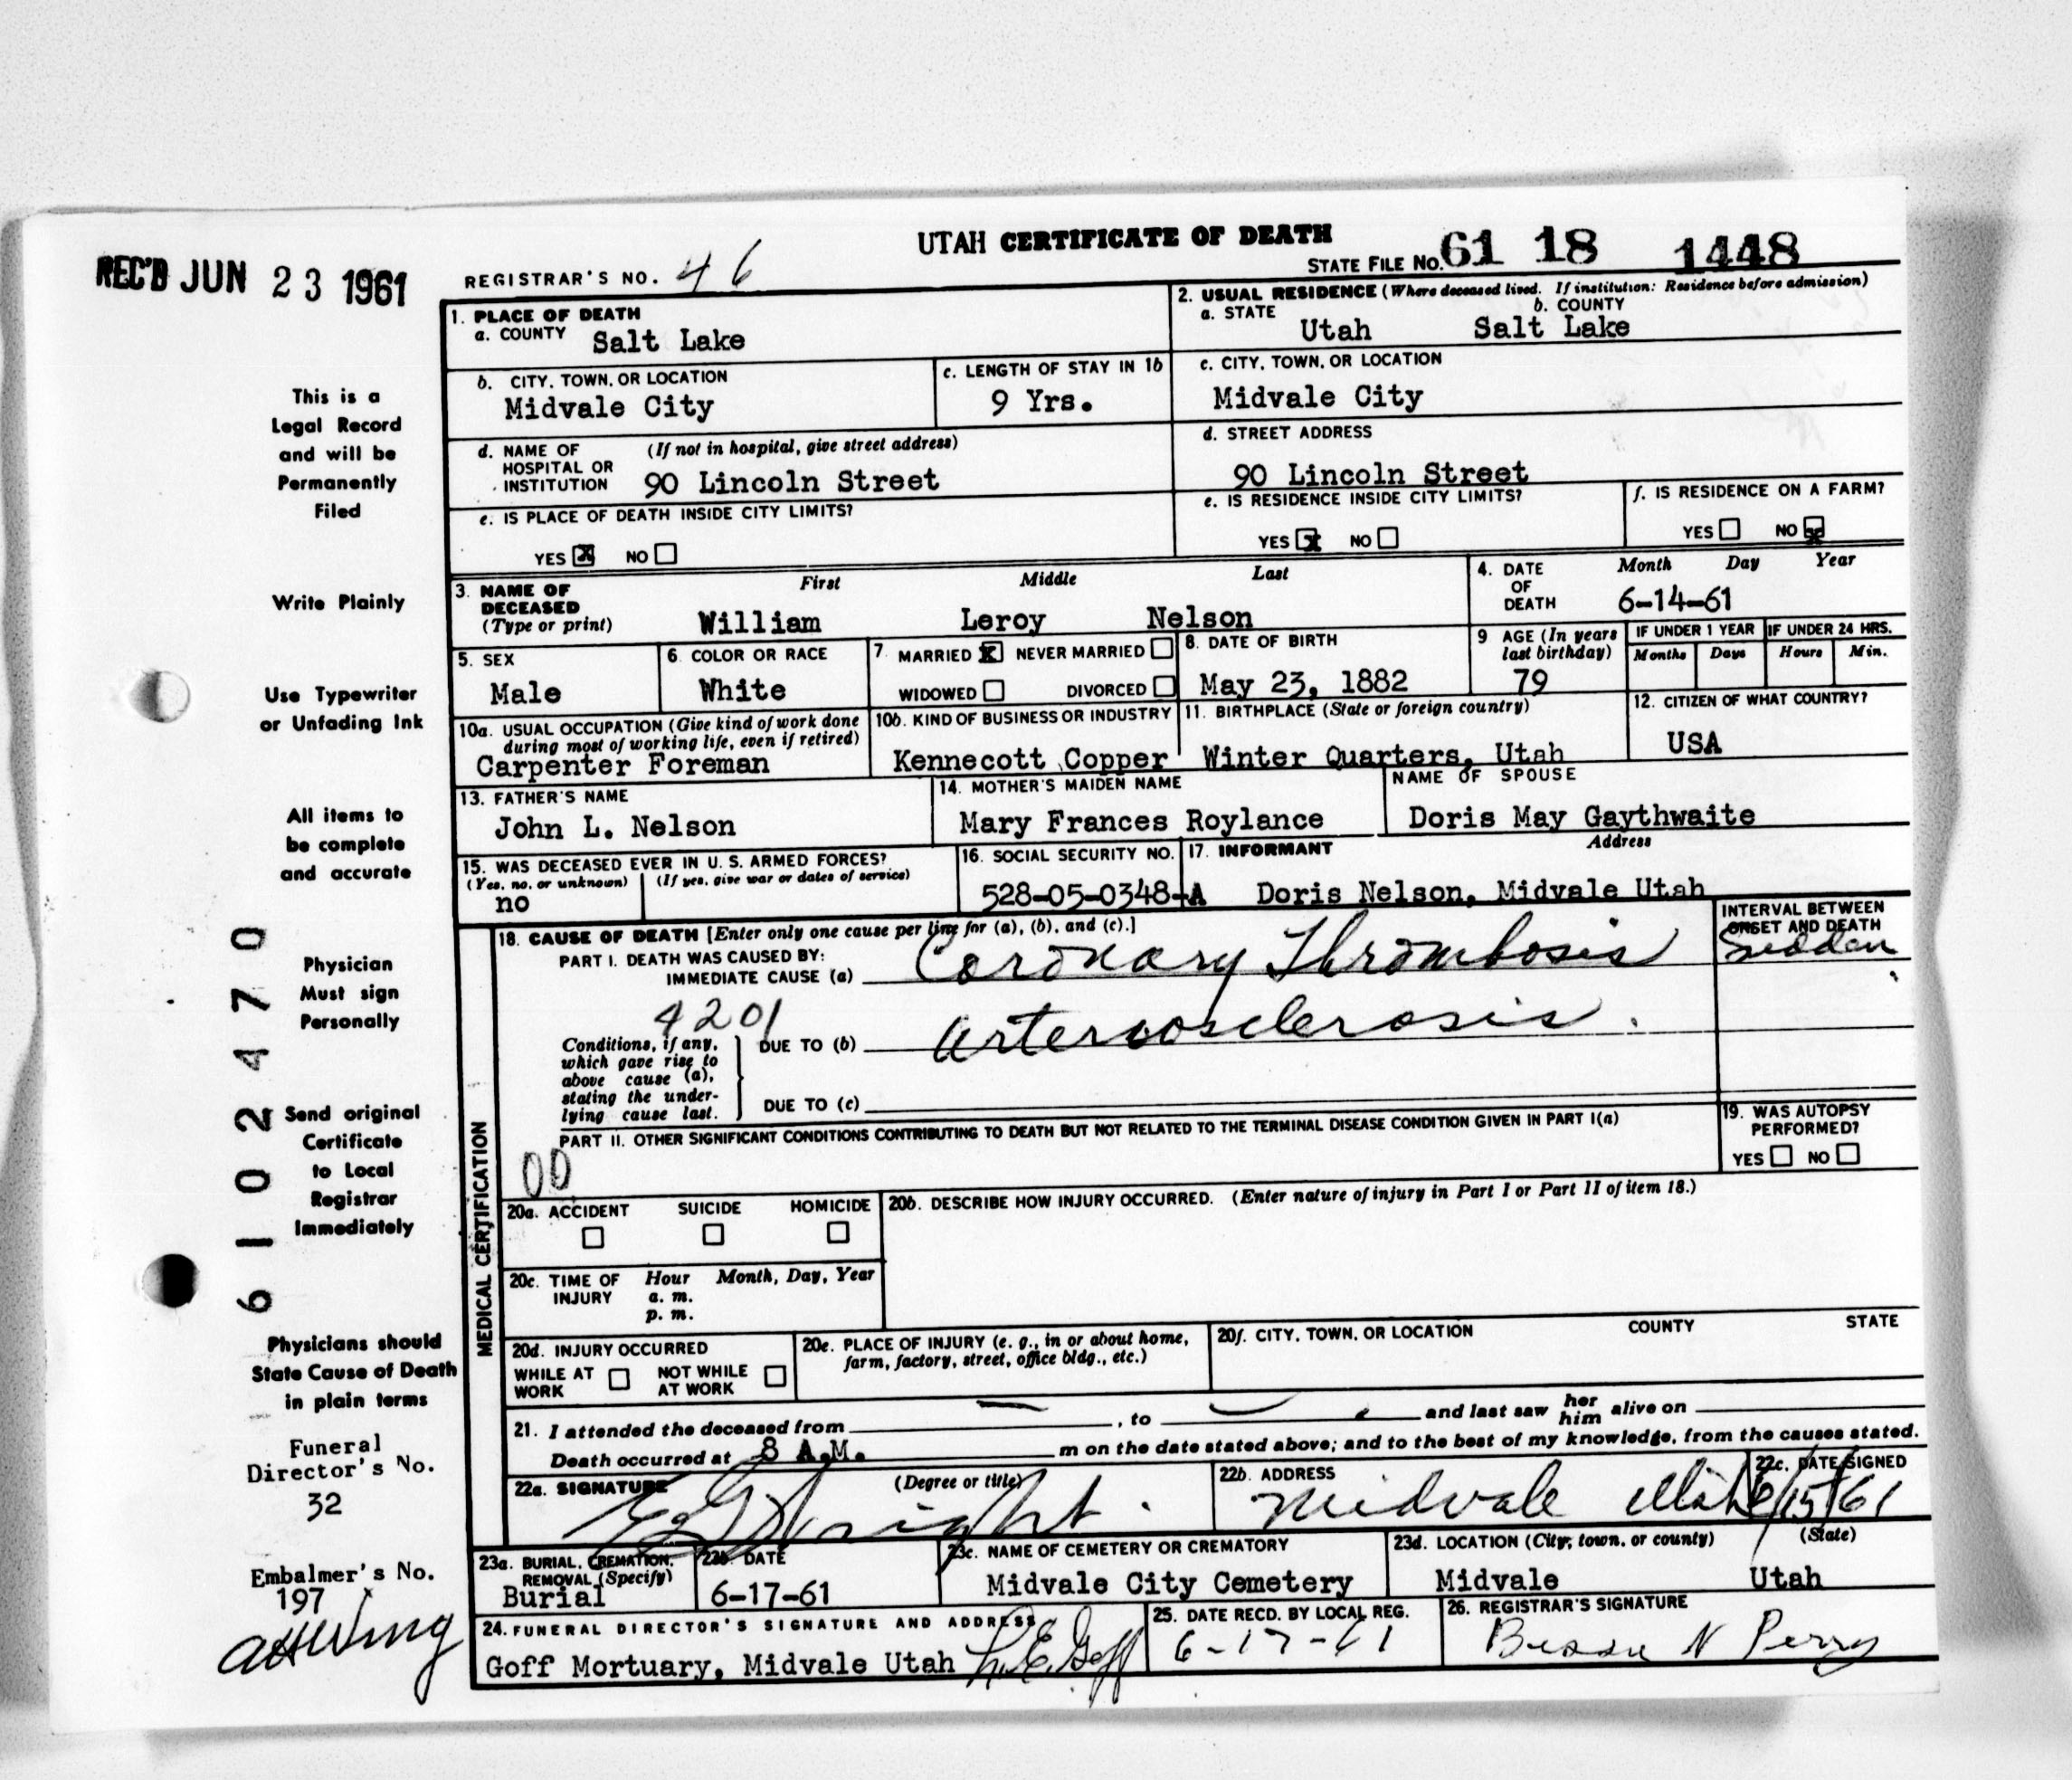 UTAH CERTIFICATE OF DEATH
REC'D JUN 23 1961
REGISTRAR'S NO. 46
STATE FILE NO. 61 18 1448
1. PLACE OF DEATH
a. COUNTY Salt Lake
2. USUAL RESIDENCE (Where deceased lived. If institution: Residence before admission)
a. STATE Utah b. COUNTY Salt Lake
b. CITY, TOWN, OR LOCATION
Midvale City
c. LENGTH OF STAY IN 1b
9 Yrs.
c. CITY, TOWN, OR LOCATION
Midvale City
d. NAME OF HOSPITAL OR INSTITUTION (If not in hospital, give street address)
90 Lincoln Street
d. STREET ADDRESS
90 Lincoln Street
e. IS PLACE OF DEATH INSIDE CITY LIMITS?
YES X NO
e. IS RESIDENCE INSIDE CITY LIMITS?
YES X NO
f. IS RESIDENCE ON A FARM?
YES NO X
3. NAME OF DECEASED (Type or print)
First Middle Last
William Leroy Nelson
4. DATE OF DEATH
Month Day Year
6-14-61
5. SEX
Male
6. COLOR OR RACE
White
7. MARRIED X NEVER MARRIED
WIDOWED DIVORCED
8. DATE OF BIRTH
May 23, 1882
9 AGE (In years last birthday)
79
IF UNDER 1 YEAR
Months Days
IF UNDER 24 HRS.
Hours Min.
10a. USUAL OCCUPATION (Give kind of work done during most of working life, even if retired)
Carpenter Foreman
10b. KIND OF BUSINESS OR INDUSTRY
Kennecott Copper
11. BIRTHPLACE (State or foreign country)
Winter Quarters, Utah
12. CITIZEN OF WHAT COUNTRY?
USA
13. FATHER'S NAME
John L. Nelson
14. MOTHER'S MAIDEN NAME
Mary Frances Roylance
NAME OF SPOUSE
Doris May Gaythwaite
15. WAS DECEASED EVER IN U. S. ARMED FORCES?
(Yes, no, or unknown) (If yes, give war or dates of service)
no
16. SOCIAL SECURITY NO.
528-05-0348-A
17. INFORMANT Address
Doris Nelson, Midvale Utah
MEDICAL CERTIFICATION
18. CAUSE OF DEATH [Enter only one cause per line for (a), (b), and (c).]
PART I. DEATH WAS CAUSED BY:
IMMEDIATE CAUSE (a) Coronary Thrombosis
INTERVAL BETWEEN ONSET AND DEATH
Sudden
4201
Conditions, if any, which gave rise to above cause (a), stating the underlying cause last.
DUE TO (b) Arteriosclerosis.
DUE TO (c)
PART II. OTHER SIGNIFICANT CONDITIONS CONTRIBUTING TO DEATH BUT NOT RELATED TO THE TERMINAL DISEASE CONDITION GIVEN IN PART I(a)
00
19. WAS AUTOPSY PERFORMED?
YES NO
20a. ACCIDENT SUICIDE HOMICIDE
20b. DESCRIBE HOW INJURY OCCURRED. (Enter nature of injury in Part I or Part II of item 18.)
20c. TIME OF INJURY Hour Month, Day, Year
a. m.
p. m.
20d. INJURY OCCURRED
WHILE AT WORK NOT WHILE AT WORK
20e. PLACE OF INJURY (e. g., in or about home, farm, factory, street, office bldg., etc.)
20f. CITY, TOWN, OR LOCATION COUNTY STATE
21. I attended the deceased from , to and last saw her him alive on
Death occurred at 8 A.M. m on the date stated above; and to the best of my knowledge, from the causes stated.
22a. SIGNATURE (Degree or title)
22b. ADDRESS
Midvale Utah
22c. DATE SIGNED
6/15/61
23a. BURIAL, CREMATION, REMOVAL (Specify)
Burial
23b. DATE
6-17-61
23c. NAME OF CEMETERY OR CREMATORY
Midvale City Cemetery
23d. LOCATION (City, town, or county) (State)
Midvale Utah
24. FUNERAL DIRECTOR'S SIGNATURE AND ADDRESS
Goff Mortuary, Midvale Utah L. E. Goff
25. DATE RECD. BY LOCAL REG.
6-17-61
26. REGISTRAR'S SIGNATURE
Bessie N Perry
This is a
Legal Record
and will be
Permanently
Filed
Write Plainly
Use Typewriter
or Unfading Ink
All items to
be complete
and accurate
Physician
Must sign
Personally
Send original
Certificate
to Local
Registrar
Immediately
Physicians should
State Cause of Death
in plain terms
Funeral
Director's No.
32
Embalmer's No.
197
6102470